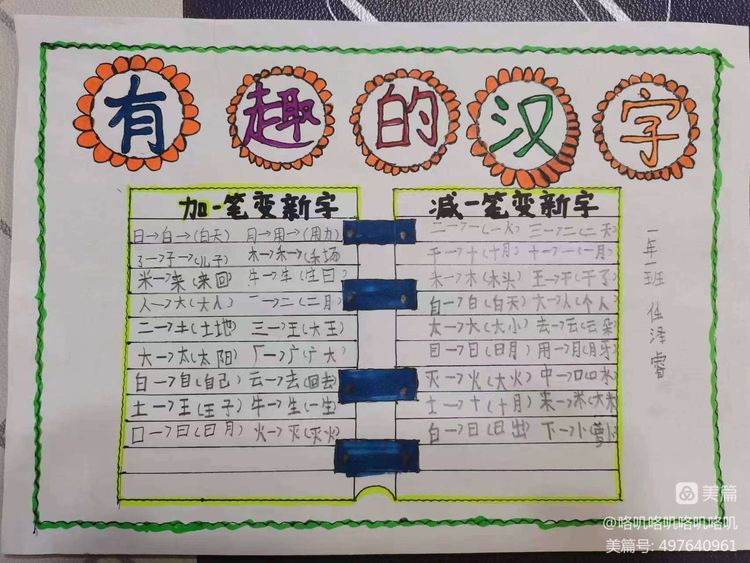 有趣的汉字
加一笔变新字
日→白→(白天) 月→用→(用力)
了→子→(儿子) 木→禾→(禾场
米→来(来回) 牛→生(生日)
人→大(大人) 一→二(二月)
二→土(土地) 三→王(大王)
大→太(太阳) 厂→广(广大)
白→自(自己) 云→去(回去)
土→王(王子) 牛→生(一生)
口→日(日月) 火→灭(灭火)
减一笔变新字
二→一(一人) 三→二(二天)
干→十(十月) 十→一(一月)
未→木(木头) 王→干(干了)
自→白(白天) 大→人(个人)
太→大(大小) 去→云(云朵)
目→日(日月) 用→月(月牙)
灭→火(大火) 中→口(口水)
土→十(十月) 来→米(大米
白→日(日出) 下→卜(萝卜
一年一班 泽睿
美篇
@咯叽咯叽咯叽咯叽
美篇号: 497640961